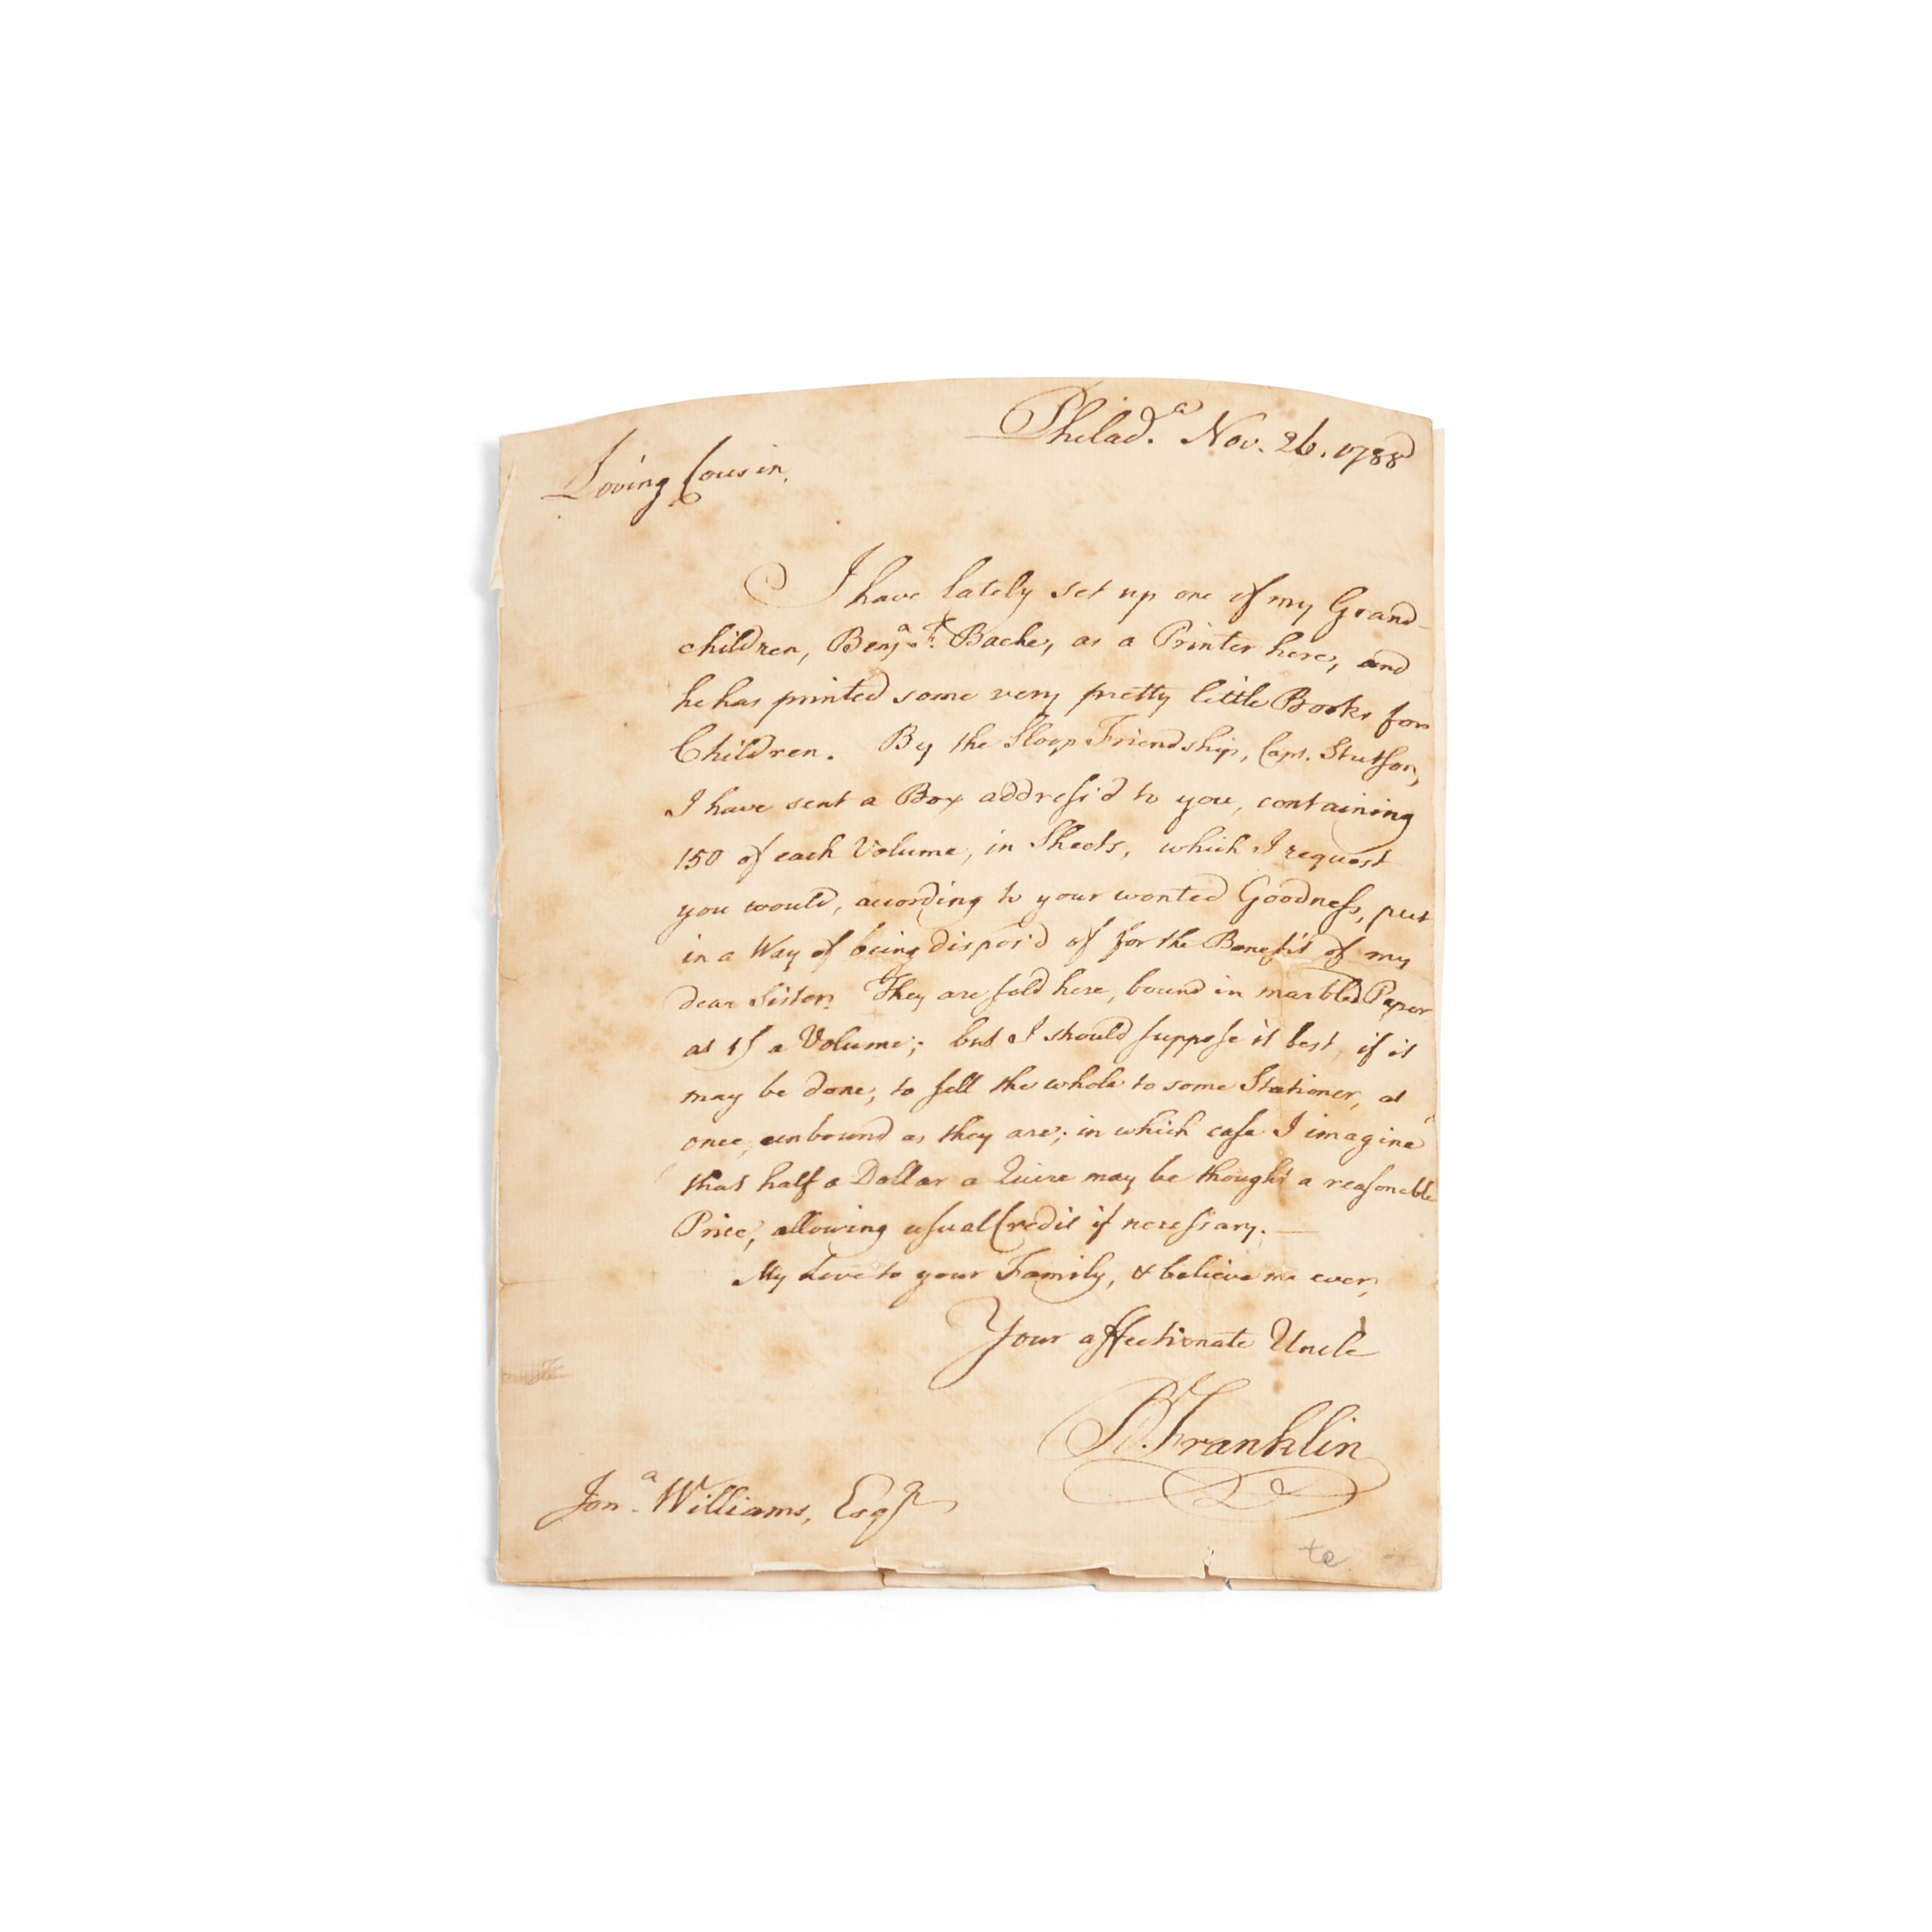 Philad.ª Nov. 26. 1788
Loving Cousin,
I have lately set up one of my Grand-
children, Benj.ª F. Bache, as a Printer here, and
he has printed some very pretty little Books for
Children. By the Sloop Friendship, Capt. Stutson,
I have sent a Box address'd to you, containing
150 of each Volume, in Sheets, which I request
you would, according to your wonted Goodness, put
in a Way of being dispos'd of for the Benefit of my
dear Sister. They are sold here, bound in marbled Paper
at 1 s a Volume; but I should suppose it best, if it
may be done, to sell the whole to some Stationer, at
once, unbound as they are; in which case I imagine
that half a Dollar a Quire may be thought a reasonable
Price, allowing usual Credit if necessary.—
My Love to your Family, & believe me ever,
Your affectionate Uncle
B. Franklin
Jon.ª Williams, Esqr